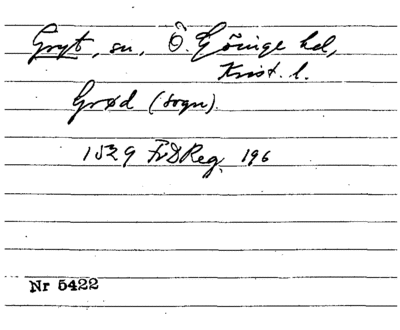 Gryt, sn, Ö. Göinge hd,
Krist. l.
Grød (sogn).
1529 FrDReg. 196
Nr 5422